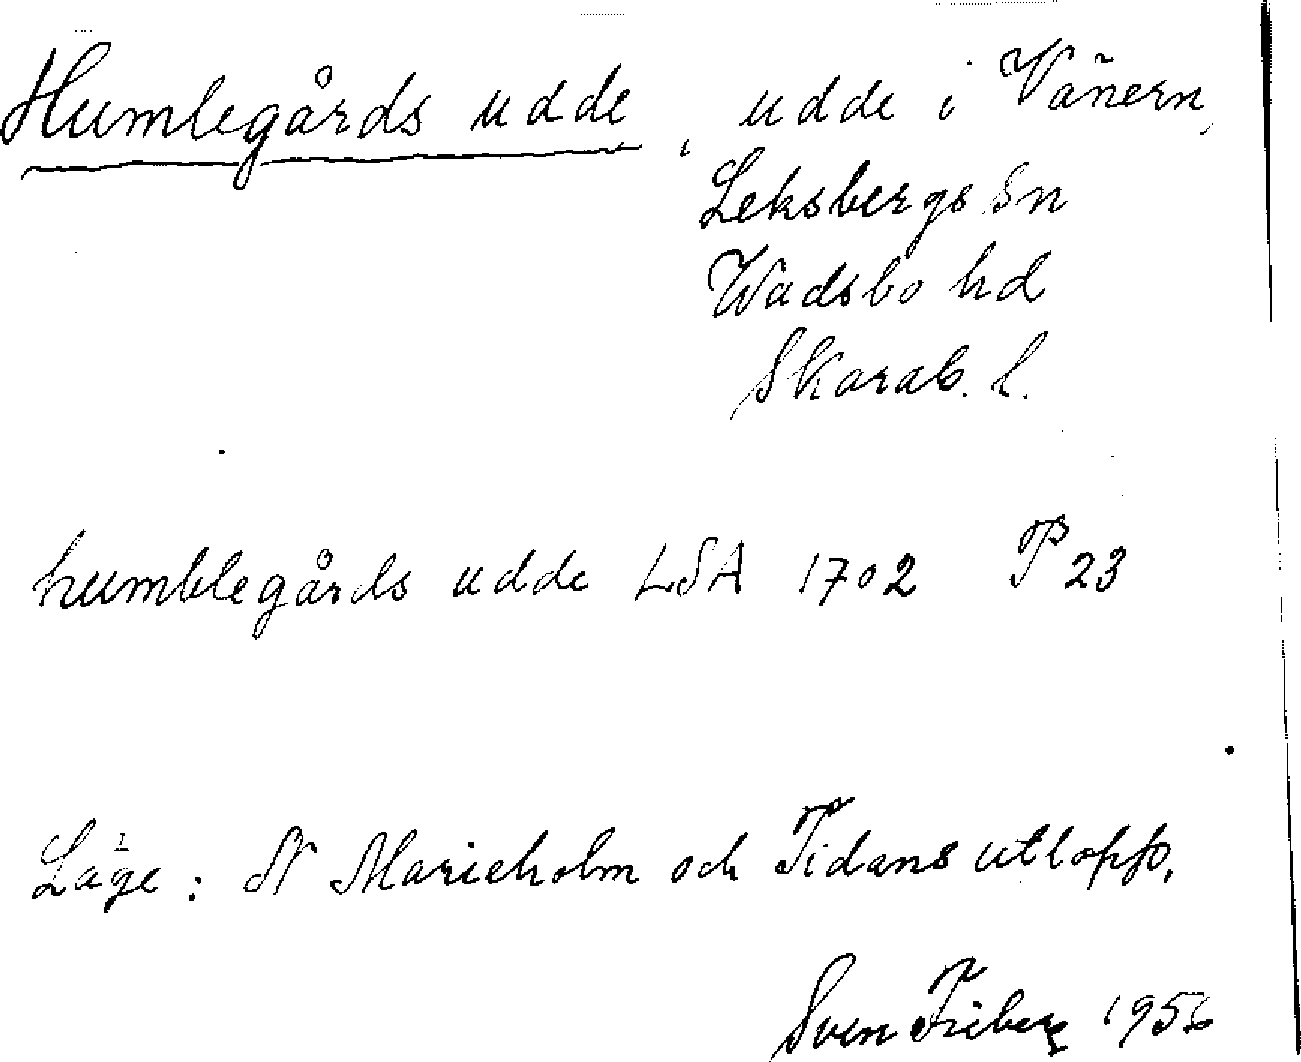 Humlegårds udde, udde i Vänern,
Leksbergs sn
Wadsbo hd
Skarab. l.
humblegårds udde LSA 1702 P 23
Läge: N Marieholm och Tidans utlopp.
Sven Friberg 1956